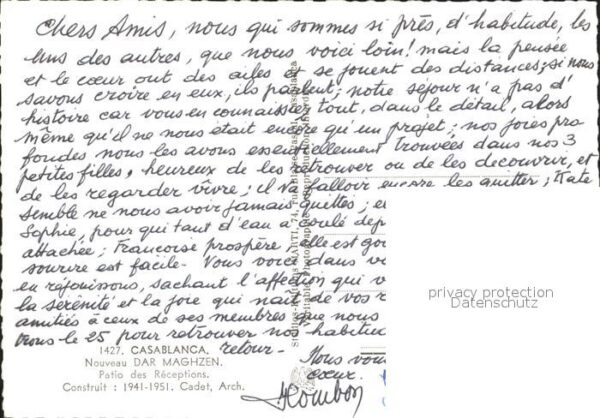 Chers Amis, nous qui sommes si près, d'habitude, les
uns des autres, que nous voici loin! mais la pensée
et le cœur ont des ailes et se jouent des distances; si nous
savons croire en eux, ils parlent; notre séjour n'a pas d'
histoire car vous en connaissiez tout, dans le détail, alors
même qu'il ne nous était encore qu'un projet; nos joies pro
fondes nous les avons essentiellement trouvées dans nos 3
petites filles, heureux de les retrouver ou de les decouvrir, et
de les regarder vivre; il va falloir encore les quitter; Kate
semble ne nous avoir jamais quittés; e
Sophie, pour qui tant d'eau a coulé dep
attachée; Francoise prospère; elle est go
sourire est facile- Vous voici dans v
en réjouissons, sachant l'affection qui v
la sérénité et la joie qui nait de vos r
amitiés à ceux de ses membres que nous
le 25 pour retrouver no habitu
retour-
Nous vou
cœur.
1427. CASABLANCA.
Nouveau DAR MAGHZEN.
Patio des Réceptions.
Construit : 1941-1951. Cadet, Arch.
MARTI, 74, rue
privacy protection
Datenschutz